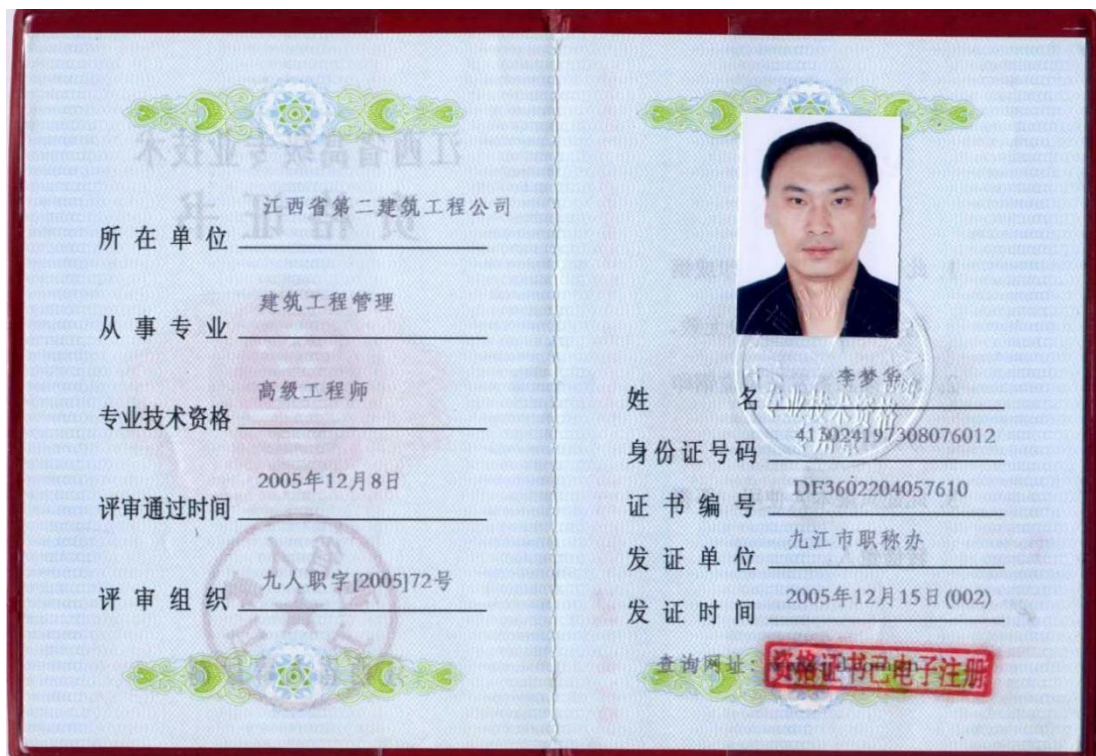 江西省高级专业技术
资格证书
所在单位 江西省第二建筑工程公司
从事专业 建筑工程管理
专业技术资格 高级工程师
评审通过时间 2005年12月8日
评审组织 九人职字[2005]72号
姓名 李梦华
专业技术资格
专用章
身份证号码 413024197308076012
证书编号 DF3602204057610
发证单位 九江市职称办
发证时间 2005年12月15日(002)
查询网址:
资格证书已电子注册